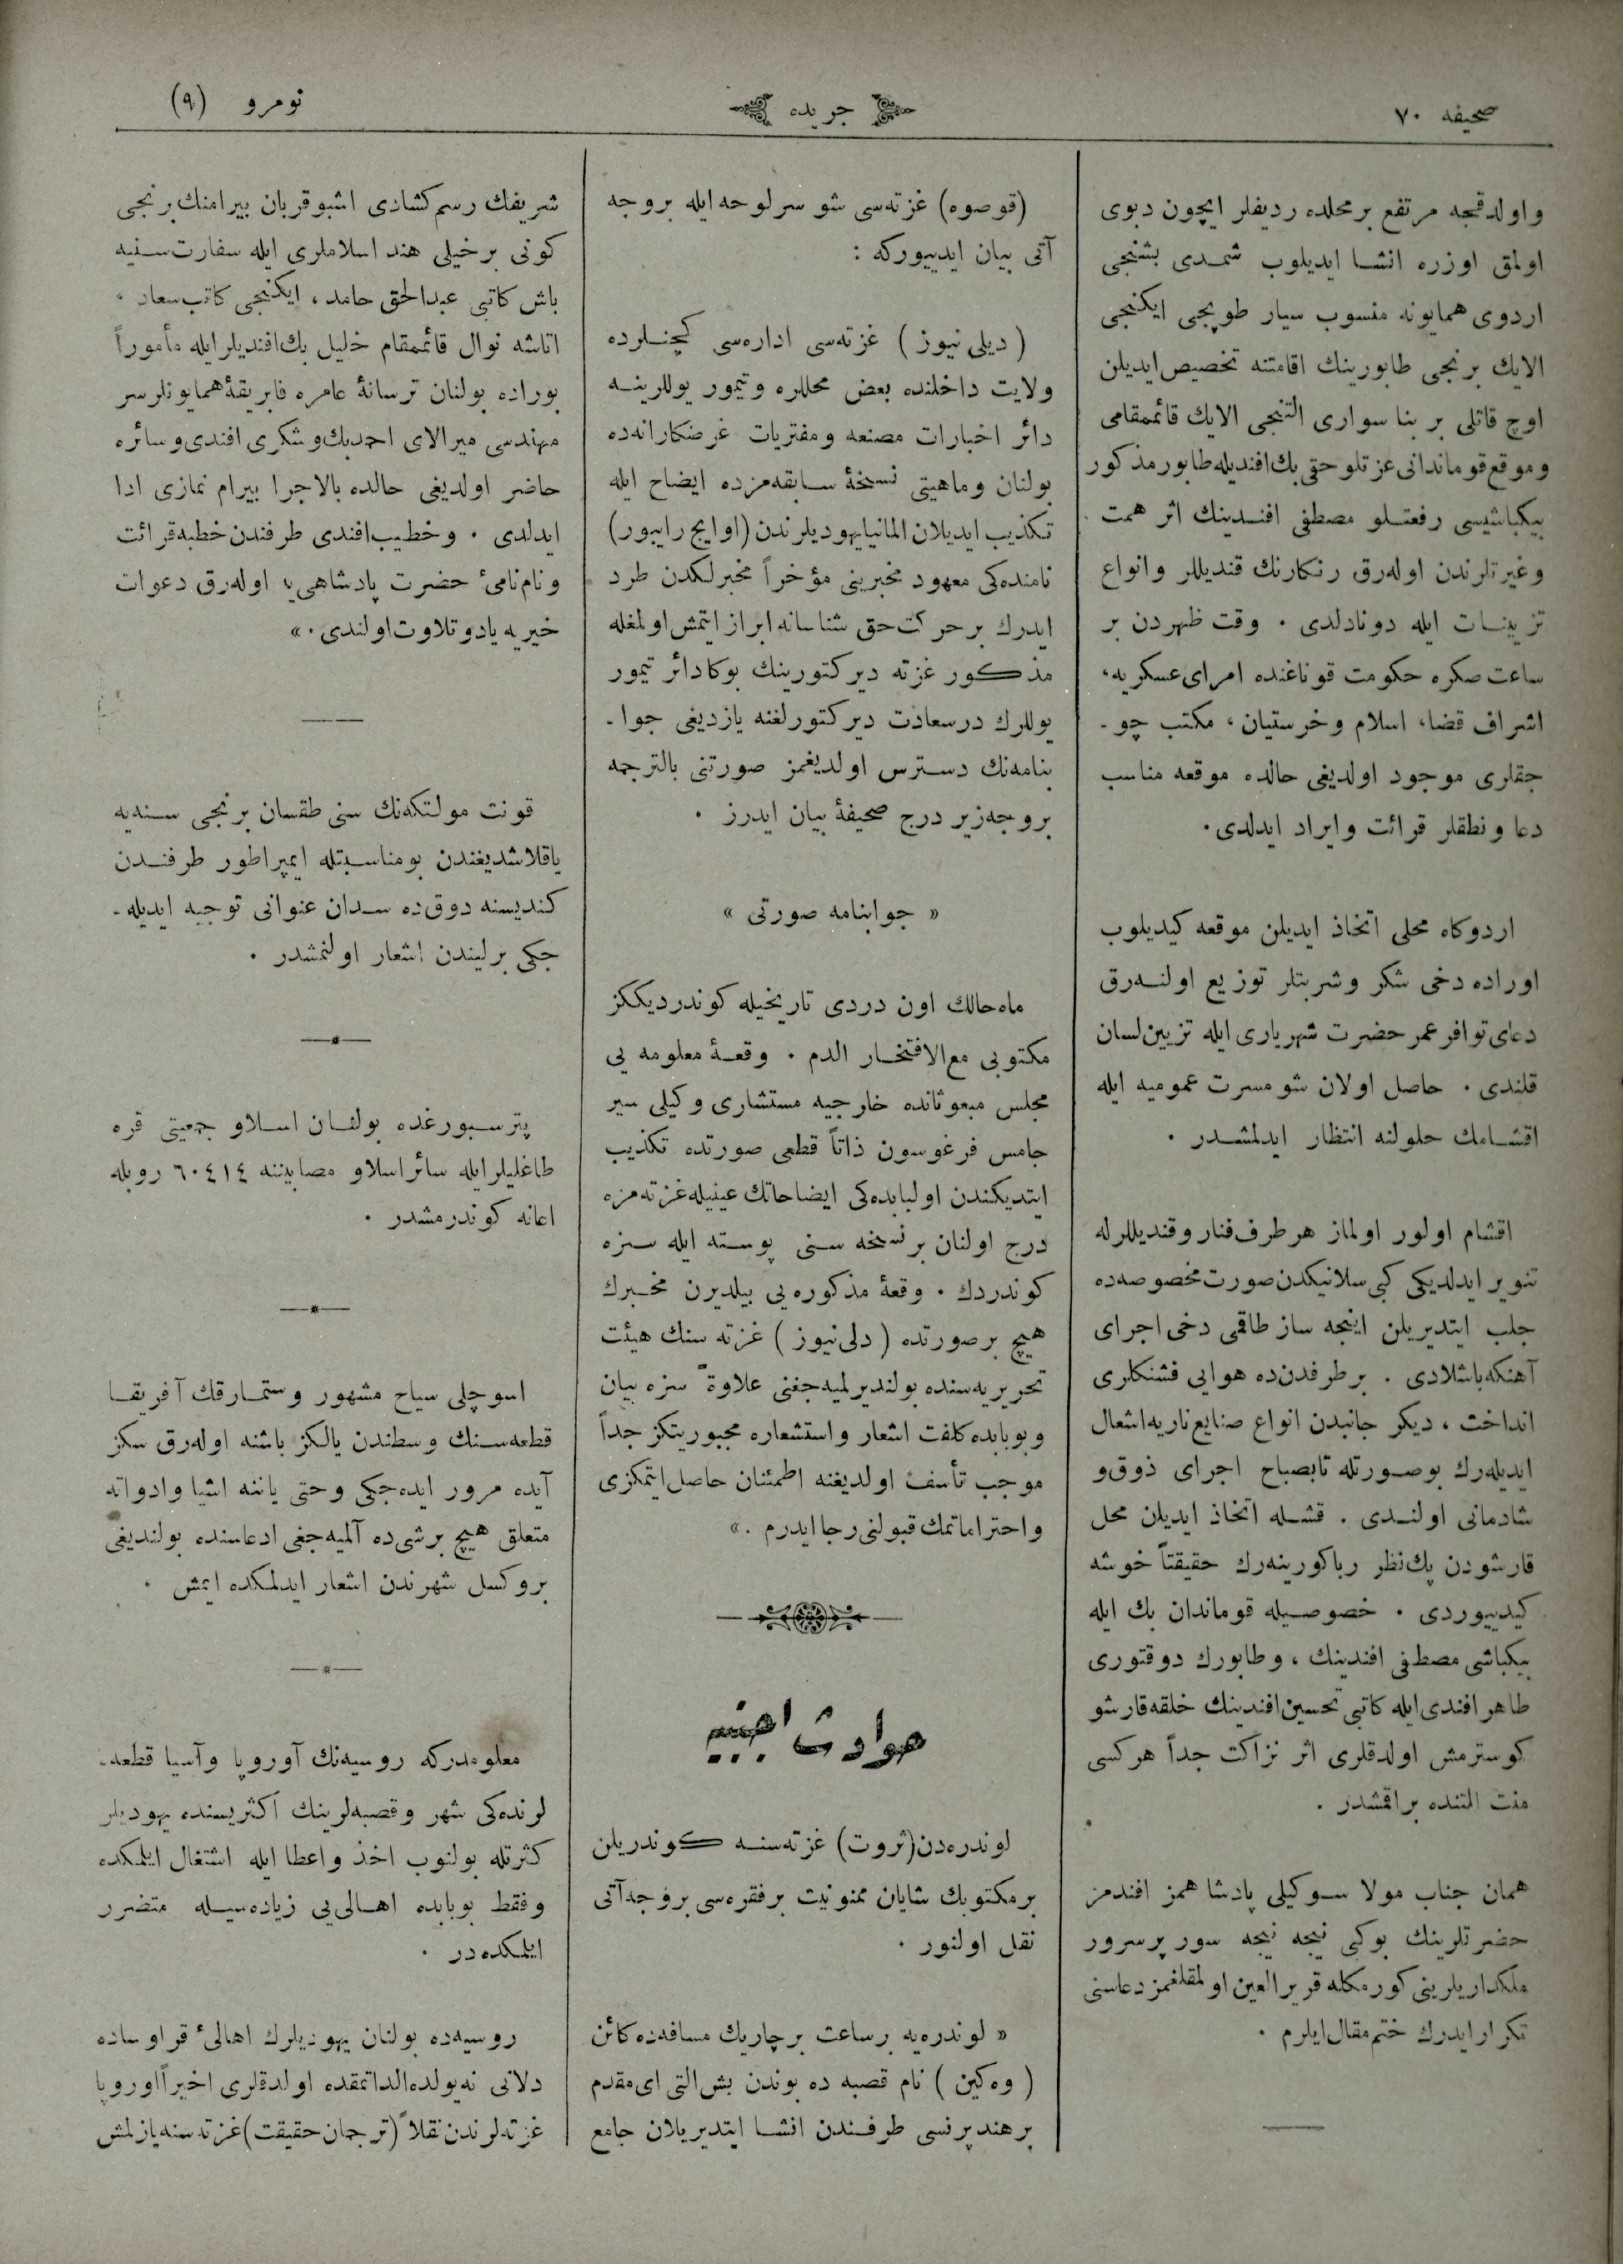 صحیفه ۷۰
جریده
نومرو (۹)
و اولدقجه مرتفع بر محلده ردیفلر ایچون دبوی
اولمق اوزره انشا ایدیلوب شمدی بشنجی
اردوی همایونه منسوب سیار طوپجی ایکنجی
الایك برنجی طابورینك اقامتنه تخصیص ایدیلن
اوچ قاتلی بر بنا سواری التنجی الایك قائممقامی
و موقع قوماندانی عزتلو حتی بك افندیله طابور مذکور
بیكباشیسی رفعتلو مصطفی افندینك اثر همت
و غیرتلرندن اوله‌رق رنکارنك قندیللر و انواع
تزیینات ایله دونادلدی . وقت ظهردن بر
ساعت صکره حکومت قوناغنده امرای عسکریه،
اشراف قضا، اسلام و خرستیان، مکتب چو ـ
جقلری موجود اولدیغی حالده موقعه مناسب
دعا و نطقلر قرائت و ایراد ایدلدی.
اردوکاه محلی اتخاذ ایدیلن موقعه کیدیلوب
اوراده دخی شکر و شربتلر توزیع اولنه‌رق
دعای توافر عمر حضرت شهریاری ایله تزیین لسان
قلندی . حاصل اولان شو مسرت عمومیه ایله
اقشامك حلولنه انتظار ایدلمشدر .
اقشام اولور اولماز هر طرف فنار و قندیللرله
تنویر ایدلدیکی کبی سلانیکدن صورت مخصوصه‌ده
جلب ایتدیریلن اینجه ساز طاقمی دخی اجرای
آهنکه باشلادی . بر طرفدن‌ده هوایی فشنکلری
انداخت ، دیکر جانبدن انواع صنایع ناریه اشعال
ایدیله‌رك بو صورتله تا بصباح اجرای ذوق و
شادمانی اولندی . قشله اتخاذ ایدیلن محل
قارشودن پك نظر ربا کورینه‌رك حقیقتاً خوشه
کیدییوردی . خصوصیله قوماندان بك ایله
بیكباشی مصطفی افندینك ، و طابورك دوقتوری
طاهر افندی ایله کاتبی تحسین افندینك خلقه قارشو
کوسترمش اولدقلری اثر نزاکت جداً هرکسی
منت التنده براقمشدر .
همان جناب مولا سوکیلی پادشاهمز افندمز
حضرتلرینك بوکبی نیجه نیجه سور پر سرور
ملکداریلرینی کورمکله قریرالعین اولمقلغمز دعاسنی
تکرار ایدرك ختم مقال ایلرم .
(قوصوه) غزته‌سی شو سرلوحه ایله بروجه
آتی بیان ایدییورکه :
(دیلی نیوز) غزته‌سی اداره‌سی کچنلرده
ولایت داخلنده بعض محللره و تیمور یوللرینه
دائر اخبارات مصنعه و مفتریات غرضکارانه‌ده
بولنان و ماهیتی نسخهٔ سابقه‌مزده ایضاح ایله
تکذیب ایدیلان المانیا یهودیلرندن (اوایج رایبور)
نامنده‌کی معهود مخبرینی مؤخراً مخبرلکدن طرد
ایدرك بر حرکت حق شناسانه ابراز ایتمش اولمغله
مذکور غزته دیرکتورینك بوکا دائر تیمور
یوللرك درسعادت دیرکتورلغنه یازدیغی جوا ـ
بنامه‌نك دسترس اولدیغمز صورتنی بالترجمه
بروجه زیر درج صحیفهٔ بیان ایدرز .
« جوابنامه صورتی »
ماه حالك اون دردی تاریخیله کوندردیککز
مکتوبی مع الافتخار الدم . وقعهٔ معلومه یی
مجلس مبعوثانده خارجیه مستشاری وکیلی سیر
جامس فرغوسون ذاتاً قطعی صورتده تکذیب
ایتدیکندن اولبابده‌کی ایضاحاتك عینیله غزته‌مزه
درج اولنان بر نسخه سنی پوسته ایله سزه
کوندردك . وقعهٔ مذکوره یی بیلدیرن مخبرك
هیچ بر صورتده (دلی نیوز) غزته سنك هیئت
تحریریه‌سنده بولندیرلمیه‌جغنی علاوةً سزه بیان
و بوبابده کلفت اشعار و استشعاره مجبوریتکز جداً
موجب تأسف اولدیغنه اطمئنان حاصل ایتمکزی
و احتراماتمك قبولنی رجا ایدرم .»
حوادث اجنبیه
لوندره‌دن (ثروت) غزته‌سنه کوندریلن
بر مکتوبك شایان ممنونیت بر فقره‌سی بروجه آتی
نقل اولنور .
« لوندره‌یه بر ساعت بر چاریك مسافه‌ده کائن
(وه‌کین) نام قصبه ده بوندن بش التی ای مقدم
بر هند پرنسی طرفندن انشا ایتدیریلان جامع
شریفك رسم کشادی اشبو قربان بیرامنك برنجی
کونی بر خیلی هند اسلاملری ایله سفارت سنیه
باش کاتبی عبدالحق حامد ، ایکنجی کاتب سعاد ،
اتاشه نوال قائممقام خلیل بك افندیلر ایله مأموراً
بوراده بولنان ترسانهٔ عامره فابریقهٔ همایونلر سر
مهندسی میرالای احمد بك و شکری افندی و سائره
حاضر اولدیغی حالده بالاجرا بیرام نمازی ادا
ایدلدی . و خطیب افندی طرفندن خطبه قرائت
و نام نامیٔ حضرت پادشاهی یه اوله‌رق دعوات
خیریه یاد و تلاوت اولندی .»
قونت مولتکه‌نك سنی طقسان برنجی سنه‌یه
یاقلاشدیغندن بو مناسبتله ایمپراطور طرفندن
کندیسنه دوق‌ده سدان عنوانی توجیه ایدیله ـ
جکی برلیندن اشعار اولنمشدر .
پترسبورغده بولنان اسلاو جمعیتی قره
طاغلیلر ایله سائر اسلاو مصابیننه ٦٠٤١٤ روبله
اعانه کوندرمشدر .
اسوچلی سیاح مشهور وستمارقك آفریقا
قطعه‌سنك وسطندن یالکز باشنه اوله‌رق سکز
آیده مرور ایده‌جکی و حتی یاننه اشیا و ادواته
متعلق هیچ بر شی‌ده آلمیه‌جغی ادعاسنده بولندیغی
بروکسل شهرندن اشعار ایدلمکده ایمش .
معلومدرکه روسیه‌نك آوروپا و آسیا قطعه ـ
لرنده‌کی شهر و قصبه‌لرینك اکثریسنده یهودیلر
کثرتله بولنوب اخذ و اعطا ایله اشتغال ایلمکده
و فقط بوبابده اهالی‌یی زیاده‌سیله متضرر
ایلمکده‌در .
روسیه‌ده بولنان یهودیلرك اهالیٔ قرا و ساده
دلانی نه یولده الداتمقده اولدقلری اخیراً اوروپا
غزته‌لرندن نقلاً (ترجمان حقیقت) غزته سنه یازلمش